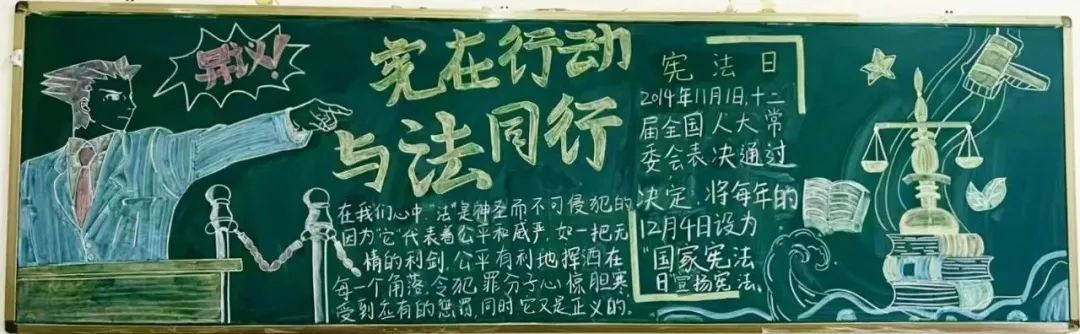 异议!
宪在行动
与法同行
在我们心中,"法"是神圣而不可侵犯的
因为"它"代表着公平和威严,如一把无
情的利剑,公平有利地挥洒在
每一个角落,令犯罪分子心惊胆寒
受到应有的惩罚,同时它又是正义的.
宪法日
2014年11月1日,十二
届全国人大常
委会表决通过
决定,将每年的
12月4日设为
"国家宪法
日"宣扬宪法、